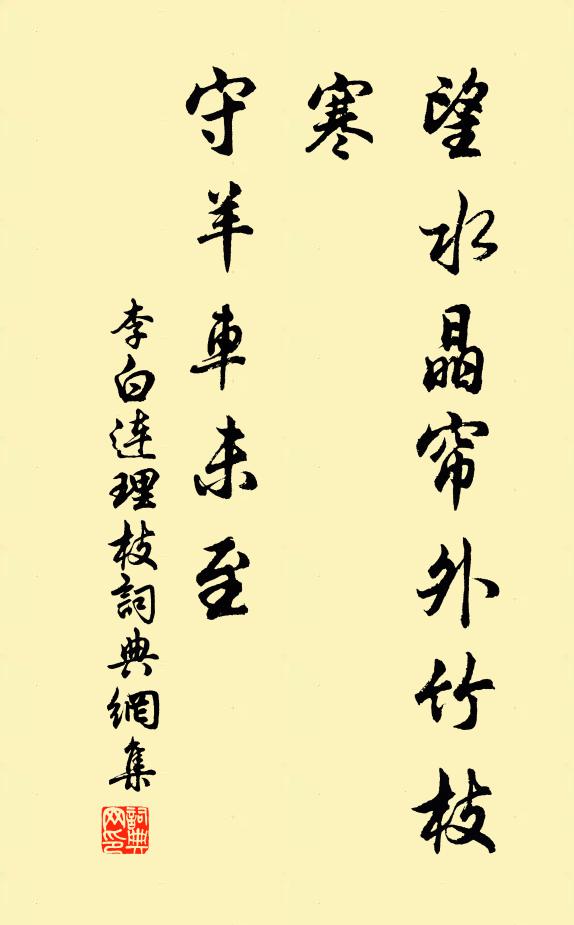 望水晶帘外竹枝
寒
守羊車未至
李白連理枝詞典網集
詞典
网印